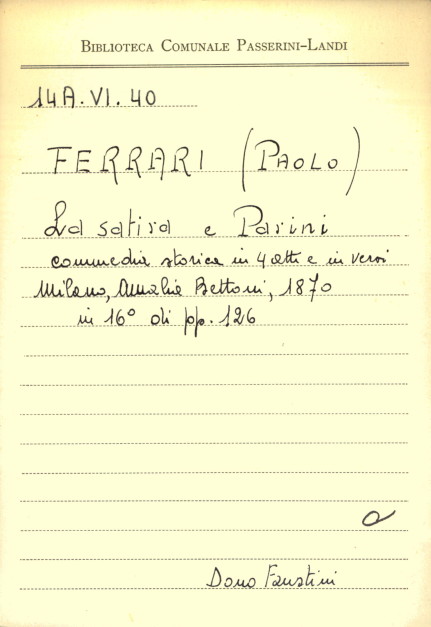 BIBLIOTECA COMUNALE PASSERINI-LANDI
14A.VI.40
FERRARI (PAOLO)
La satira e Parini
commedia storica in 4 atti e in versi
Milano, Amalia Bettoni, 1870
in 16° di pp. 126
a
Dono Faustini